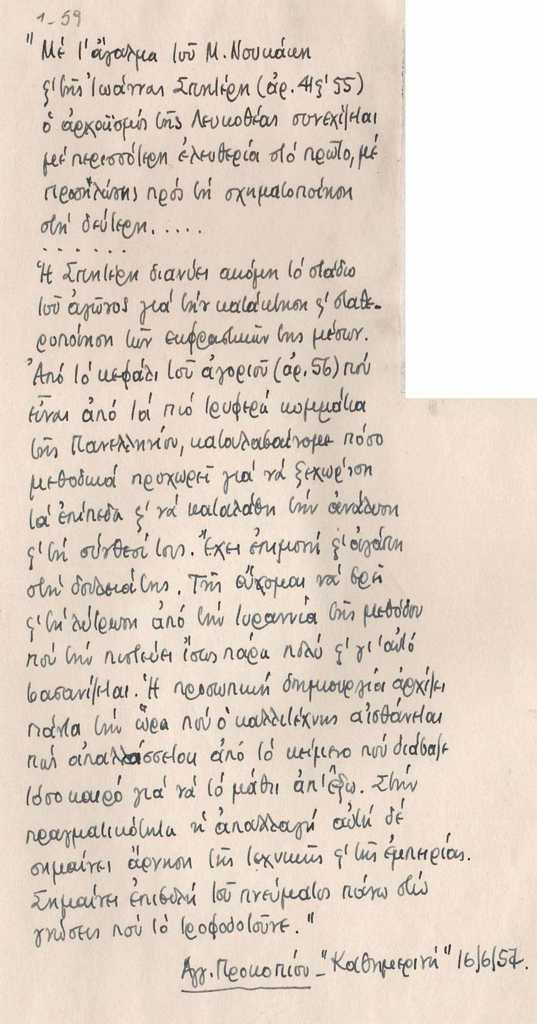 1-59
"Μέ τ' ἄγαλμα τοῦ Μ. Νουκάκη
ϛ' τῆς Ἰωάννας Σπητέρη (ἀρ. 41 ϛ' 55)
ὁ ἀρχαϊσμός τῆς Λευκοθέας συνεχίζεται
μέ περισσότερη ἐλευθερία στό πρῶτο, μέ
προσήλωσης πρός τή σχηματοποίηση
στή δεύτερη. . . . .
. . . . . .
Ἡ Σπητέρη διανύει ακόμη τό στάδιο
τοῦ ἀγῶνος γιά τήν κατάκτηση ϛ' σταθε-
ροποίηση τῶν εκφραστικῶν της μέσων.
Ἀπό τό κεφάλι τοῦ ἀγοριοῦ (ἀρ. 56) πού
εἶναι ἀπό τά πιό τρυφερά κομμάτια
τῆς Πανελληνίου, καταλαβαίνομε πόσο
μεθοδικά προχωρεῖ γιά νά ξεχωρίση
τά ἐπίπεδα ϛ' νά καταλάβη τήν ἀνάλυση
ϛ' τή σύνθεσί τους. Ἔχει ἐπιμονή ϛ' ἀγάπη
στή δουλειά της. Τῆς εὔχομαι νά βρῆ
ϛ' τή λύτρωση ἀπό τήν τυραννία τῆς μεθόδου
πού τήν πιστεύει ἴσως πάρα πολύ ϛ' γι' αὐτό
βασανίζεται. Ἡ προσωπική δημιουργία ἀρχίζει
πάντα τήν ὥρα πού ὁ καλλιτέχνης αἰσθάνεται
πώς απαλλάσσεται ἀπό τό κείμενο πού διάβαζε
τόσο καιρό γιά νά τό μάθη ἀπ' ἔξω. Στήν
πραγματικότητα ἡ ἀπαλλαγή αὐτή δέ
σημαίνει ἄρνηση τῆς τεχνικῆς ϛ' τῆς ἐμπειρίας.
Σημαίνει ἐπιβολή τοῦ πνεύματος πάνω στίς
γνώσεις πού τό τροφοδοτοῦνε."
Ἀγγ. Προκοπίου - "Καθημερινή" 16/6/57.